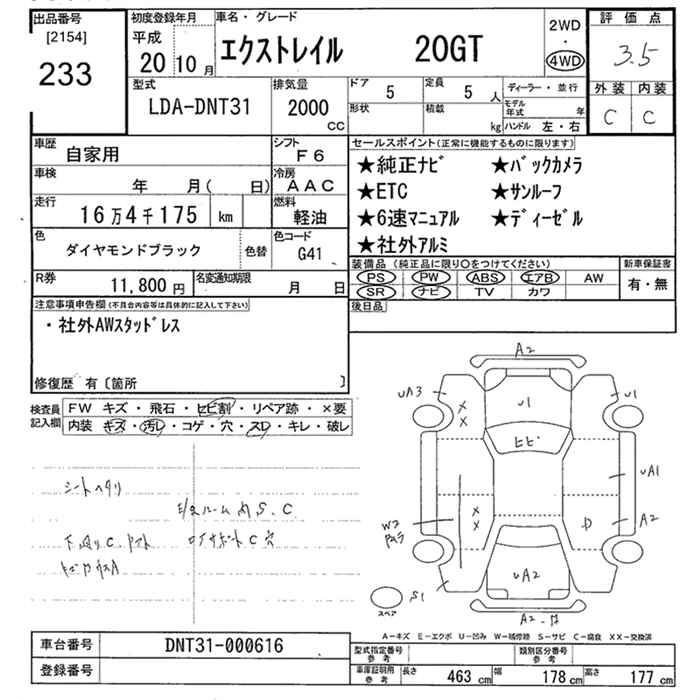 出品番号
[2154]
233
初度登録年月
平成
20 10 月
車名・グレード
エクストレイル 20GT
2WD
・
4WD
評価点
3.5
外装 内装
C C
型式
LDA-DNT31
排気量
2000
CC
ドア
5
定員
5 人
形状
積載
kg
ディーラー・並行
モデル
年式 年
ハンドル 左・右
車歴
自家用
シフト
F6
車検
年 月( 日)
冷房
AAC
走行
16万4千175 km
燃料
軽油
色
ダイヤモンドブラック
色替
色コード
G41
R券
11,800 円
名変通知期限
月 日
セールスポイント(正常に機能するものに限ります)
★純正ナビ ★バックカメラ
★ETC ★サンルーフ
★6速マニュアル ★ディーゼル
★社外アルミ
装備品(純正品に限り○をつけてください)
PS PW ABS エアB AW
SR ナビ TV カワ
新車保証書
有・無
後日品
注意事項申告欄(不具合内容等は具体的に記入して下さい)
・社外AWスタッドレス
修復歴 有〔箇所 〕
検査員
記入欄
FW キズ・飛石・ヒビ割・リペア跡・×要
内装 キズ・汚レ・コゲ・穴・スレ・キレ・破レ
シートヘタリ
S.C
A2
UA3
U1
U1
ヒビ
UA1
A2
W2
D
UA2
S1
スペア
A2
A-キズ E-エクボ U-凹み W-補修跡 S-サビ C-腐食 XX-交換済
車台番号
DNT31-000616
登録番号
型式指定番号
参考
類別区分番号
参考
車庫証明用
参考
長さ 463 cm
幅 178 cm
高さ 177 cm